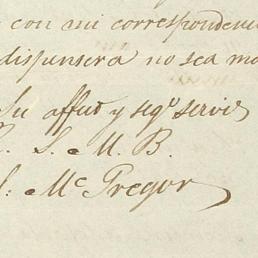 con mi correspondenci
dispensera no sea mo
Su affmo y segº servir
S. M. B.
Mc Gregor